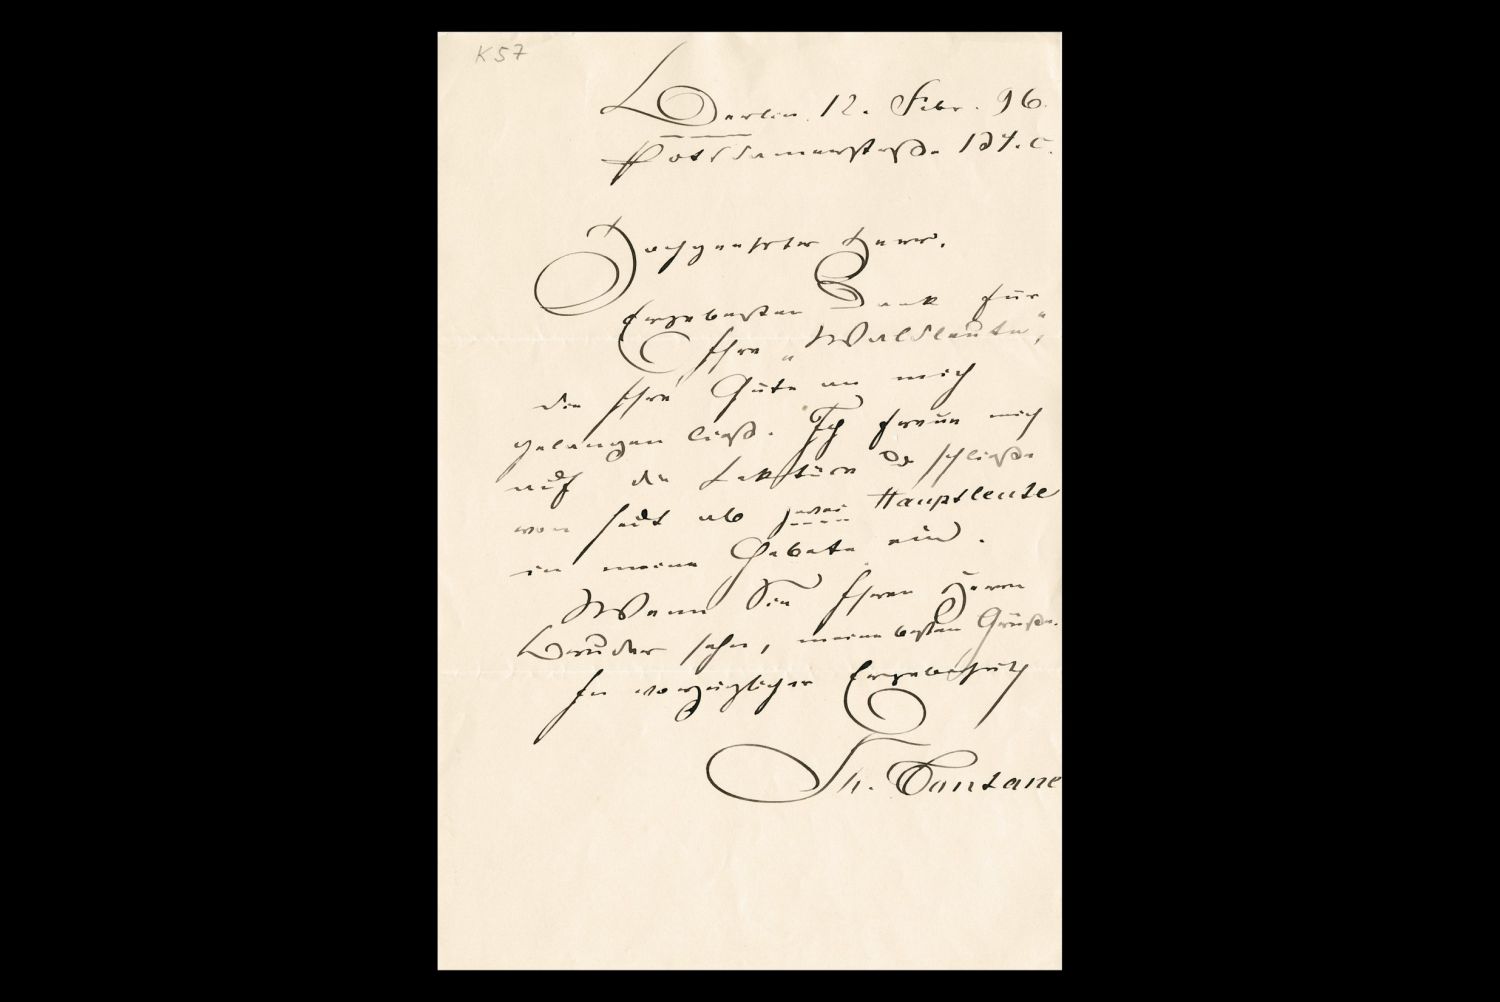 K57
Berlin 12. Febr. 96.
Potsdamerstraße 134. c.
Hochgeehrter Herr.
Ergebensten Dank für
Ihre „Waldleute“,
die Ihre Güte an mich
gelangen ließ. Ich freue mich
auf die Lektüre u. schließe
von heut ab zwei Hauptleute
in meine Gebete ein.
Wenn Sie Ihren Herrn
Bruder sehn, meine besten Grüße.
In vorzüglicher Ergebenheit
Th. Fontane